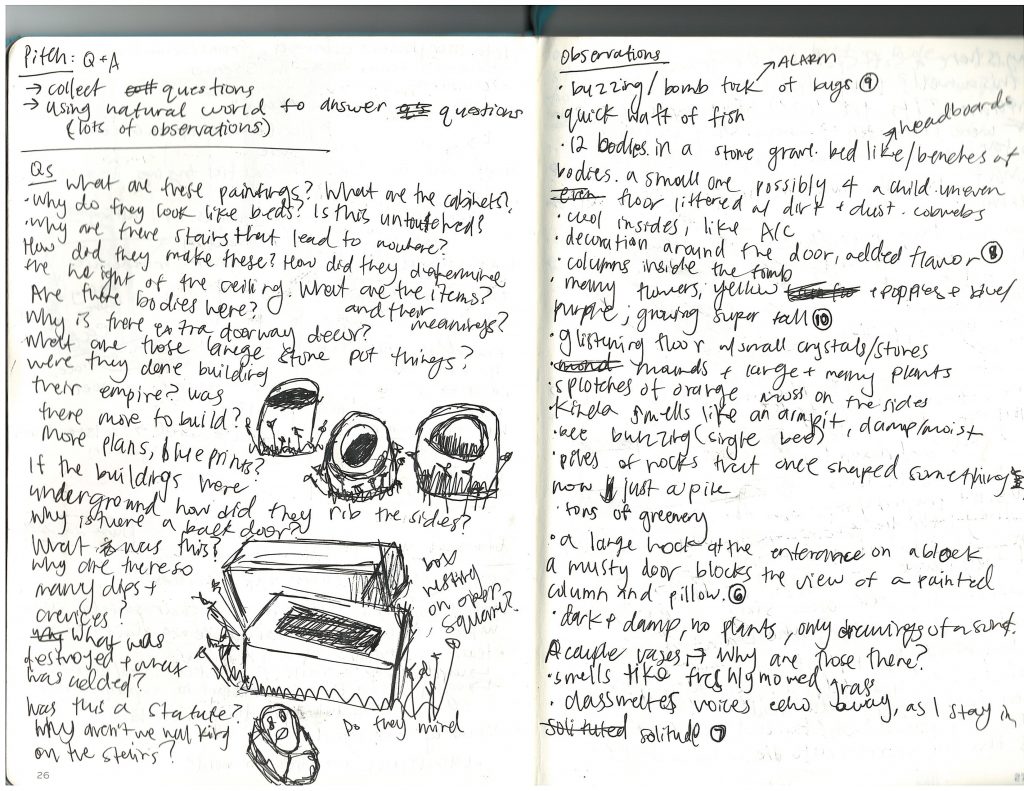 Pitch: Q + A
→ collect questions
→ using natural world to answer questions
(lots of observations)
Qs
What are these paintings? What are the cabinets?
·Why do they look like beds? Is this untouched?
·Why are there stairs that lead to nowhere?
How did they make these? How did they determine
the height of the ceiling. What are the items?
Are there bodies here? and their meanings?
Why is there extra doorway decor?
What are those large stone pot things?
were they done building
their empire? was
there more to build?
More plans, blueprints?
If the buildings were
underground how did they rib the sides?
Why is there a back door?
What was this?
Why are there so
many dips +
crevices?
What was
destroyed + what
was added?
Was this a statue?
Why aren't we walking
on the stairs?
box
resting
on open
square?
Do they mind
26
Observations
·buzzing/bomb tock of bugs ⑨
→ALARM
·quick waft of fish
·12 bodies in a stone grave. bed like/benches of
→headboards
bodies. a small one possibly 4 a child. uneven
floor littered w/ dirt + dust. cobwebs
·cool insides, like A/C
·decoration around the door, added flavor ⑧
·columns inside the tomb
·many flowers, yellow + poppies + blue/
purple, growing super tall ⑩
·glistening floor w/ small crystals/stones
mounds + large + many plants
·splotches of orange moss on the sides
·kinda smells like an armpit, damp/moist
·bee buzzing (single bee)
·piles of rocks that once shaped something
now just a pile
·tons of greenery
·a large rock at the enterance on a block
a musty door blocks the view of a painted
column and pillow. ⑥
·dark + damp, no plants, only drawings of a sort.
A couple vases, → Why are those there?
·smells like freshly mowed grass
·classmates voices echo away, as I stay in
solitude ⑦